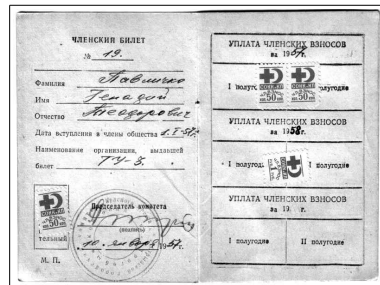 ЧЛЕНСКИЙ БИЛЕТ
№ 19.
Фамилия Павличко
Имя Генадий
Отчество Теодорович
Дата вступления в члены общества 1.I-57г.
Наименование организации, выдавшей
билет ТУ-3.
Председатель комитета
(подпись)
10 января 1957.
М. П.
УПЛАТА ЧЛЕНСКИХ ВЗНОСОВ
за 1957г.
I полугод
50 50
полугодие
УПЛАТА ЧЛЕНСКИХ ВЗНОСОВ
за 1958г.
I полугод.
I полугодие
УПЛАТА ЧЛЕНСКИХ ВЗНОСОВ
за 19 г.
I полугодие II полугодие